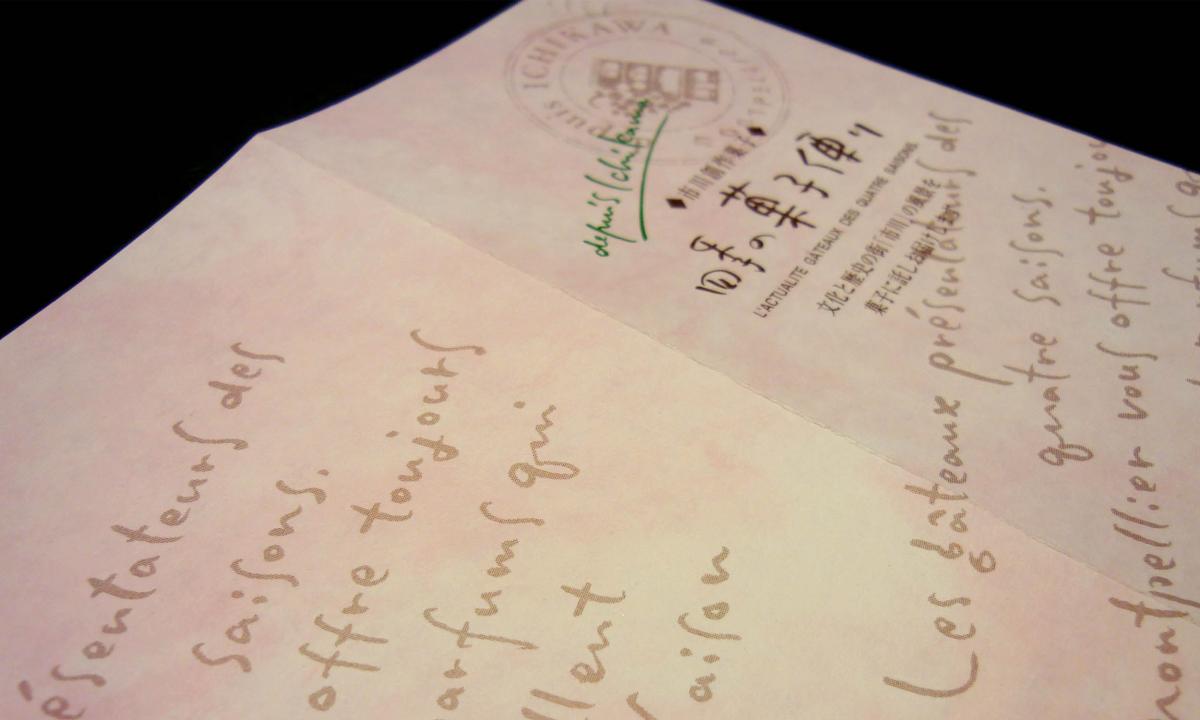 DEPUIS ICHIKAWA
depuis Ichikawa
◆市川創作菓子◆
四季の菓子便り
L'ACTUALITE GATEAUX DES QUATRE SAISONS
文化と歴史の街「市川」の風景を
菓子に託しお届けします
Les gâteaux présentateurs des
quatre saisons.
montpellier vous offre toujou
ésentateurs des
saisons.
offre toujours
arfums qui
llent
aison